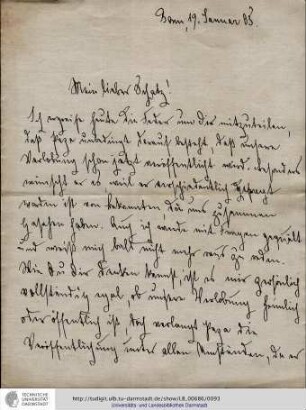 Bonn, 19. Januar 85.
Mein lieber Schatz!
Ich ergreife heute die Feder um dir mitzuteilen,
daß Papa unbedingt darauf besteht, daß unsere
Verlobung schon jetzt veröffentlicht wird. besonders
wünscht er es weil er verschiedentlich gefragt
worden ist von bekannten, die uns zusammen
gesehen haben. Auch ich werde mit Fragen gequält
und weiß mir bald nicht mehr raus zu reden.
Wie du dir denken kannst, ist es mir persönlich
vollständig egal ob unsere Verlobung heimlich
oder öffentlich ist. Doch verlangt Papa die
Veröffentlichung unter allen Umständen, da er
TECHNISCHE
UNIVERSITÄT
DARMSTADT
http://tudigit.ulb.tu-darmstadt.de/show/LB_00686/0093
Universitäts- und Landesbibliothek Darmstadt